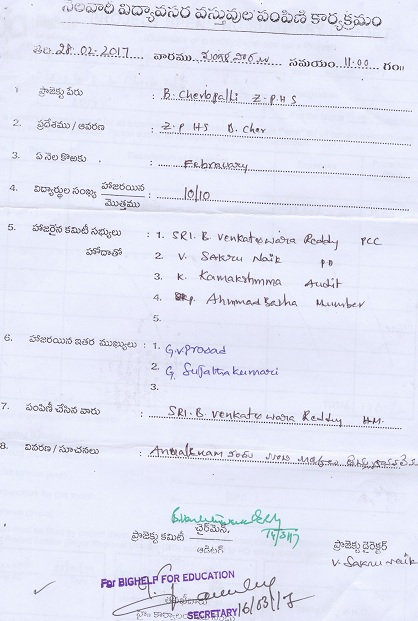 నెలవారి విద్యావసర వస్తువుల పంపిణి కార్యక్రమం
తేది. 28-02-2017 వారము మంగళవారము సమయం 11.00 గం॥
1. ప్రాజెక్టు పేరు : B. Cherlopalli Z.P.H.S
2. ప్రదేశము / ఆవరణ : Z.P HS B. Cher
3. ఏ నెల కొఱకు : February
4. విద్యార్థుల సంఖ్య హాజరయిన / మొత్తము : 10/10
5. హాజరైన కమిటీ సభ్యులు : 1. SRI. B. Venkateswara Reddy PCC
హోదాతో 2. V. Sakru Naik PD
3. K. Kamakshmma Audit
4. P. Ahmmad Basha Mumber
5.
6. హాజరయిన ఇతర ముఖ్యులు : 1. G.V Prosad
2. G. Sujatha kumari
3.
7. పంపిణీ చేసిన వారు : SRI. B. Venkateswara Reddy H.M.
8. వివరణ / సూచనలు :
ప్రాజెక్టు కమిటీ చైర్మెన్, ప్రాజెక్టు డైరెక్టర్
ఆడిటర్ V. Sakru Naik
For BIGHELP FOR EDUCATION
SECRETARY 16/03/17